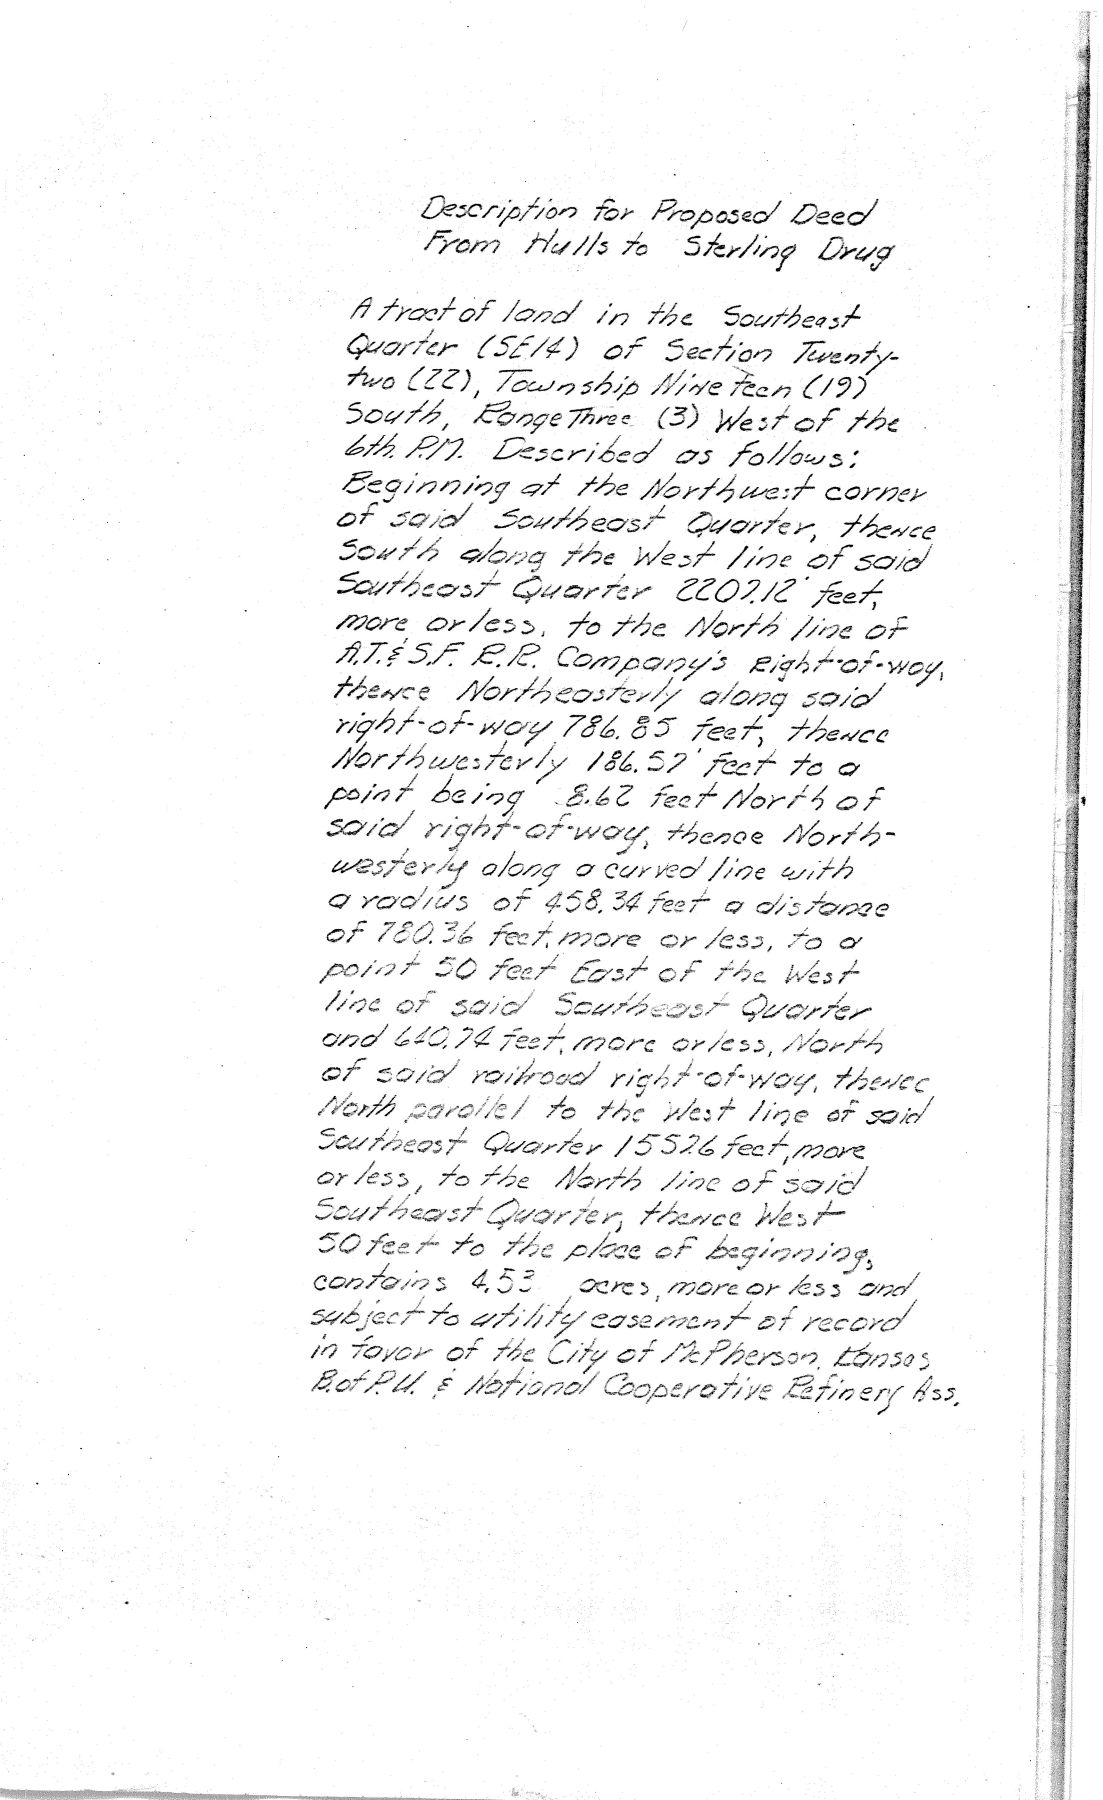 Description for Proposed Deed
From Hulls to Sterling Drug
A tract of land in the Southeast
Quarter (SE/4) of Section Twenty-
two (22), Township Nineteen (19)
South, Range Three (3) West of the
6th. P.M. Described as follows:
Beginning at the Northwest corner
of said Southeast Quarter, thence
South along the West line of said
Southeast Quarter 2207.12' feet,
more or less, to the North line of
A.T.& S.F. R.R. Company's Right-of-way,
thence Northeasterly along said
right-of-way 786.85 feet, thence
Northwesterly 186.57' feet to a
point being 8.62 feet North of
said right-of-way, thence North-
westerly along a curved line with
a radius of 458.34 feet a distance
of 780.36 feet, more or less, to a
point 50 feet East of the West
line of said Southeast Quarter
and 640.74 feet, more or less, North
of said railroad right-of-way, thence
North parallel to the West line of said
Southeast Quarter 1552.6 feet, more
or less, to the North line of said
Southeast Quarter, thence West
50 feet to the place of beginning,
contains 4.53 acres, more or less and
subject to utility easement of record
in favor of the City of McPherson, Kansas
B.of P.U. & National Cooperative Refinery Ass.